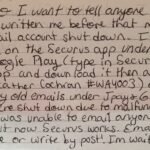 I want to tell anyone
written me before that m
ail account shut down. I
on the Securus app under
ogle Play (type in Secur
pp and download it then a
eather Cochran #WA4003)
y old emails under Jpay &
ere shut down due to malfun
was unable to email anyon
ut now Securus works. Ema
e or write by post. I'm wait